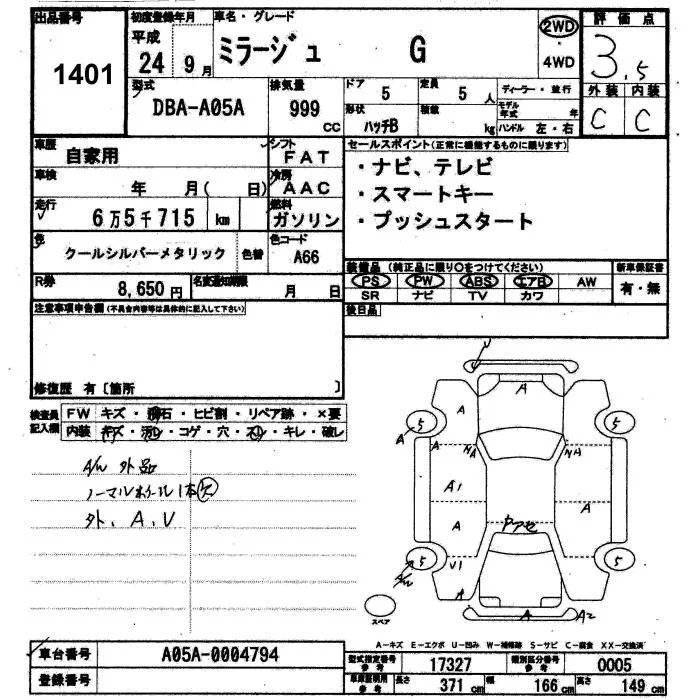 出品番号 1401
初度登録年月 平成 24 9月
車名・グレード ミラージュ G
2WD・4WD
評価点 3.5
外装 内装
C C
型式 DBA-A05A
排気量 999 CC
ドア 5 定員 5人
形状 ハッチB 積載 kg
ディーラー・並行
モデル年式 年
ハンドル 左・右
車歴 自家用
シフト FAT
車検 年 月( 日)
冷房 AAC
走行 6万5千715 km
燃料 ガソリン
色 クールシルバーメタリック 色替
色コード A66
R券 8,650円
名変通知期限 月 日
セールスポイント(正常に機能するものに限ります)
・ナビ、テレビ
・スマートキー
・プッシュスタート
装備品 (純正品に限り○をつけてください) 新車保証書
PS PW ABS エアB AW 有・無
SR ナビ TV カワ
後日品
注意事項申告欄(不具合内容等は具体的に記入して下さい)
修復歴 有〔箇所 〕
検査員記入欄
FW キズ・飛石・ヒビ割・リペア跡・×要
内装 キズ・汚レ・コゲ・穴・スレ・キレ・破レ
A/W 外品
ノーマルホイール1本欠
外、A、V
V
A
A
5
5
A
A
A1
A
A
5
5
A/W
V1
A
A
A2
スペア
A-キズ E-エクボ U-凹み W-補修跡 S-サビ C-腐食 XX-交換済
車台番号 A05A-0004794
登録番号
型式指定番号 参考 17327 類別区分番号 参考 0005
車庫証明用 参考 長さ 371 cm 幅 166 cm 高さ 149 cm